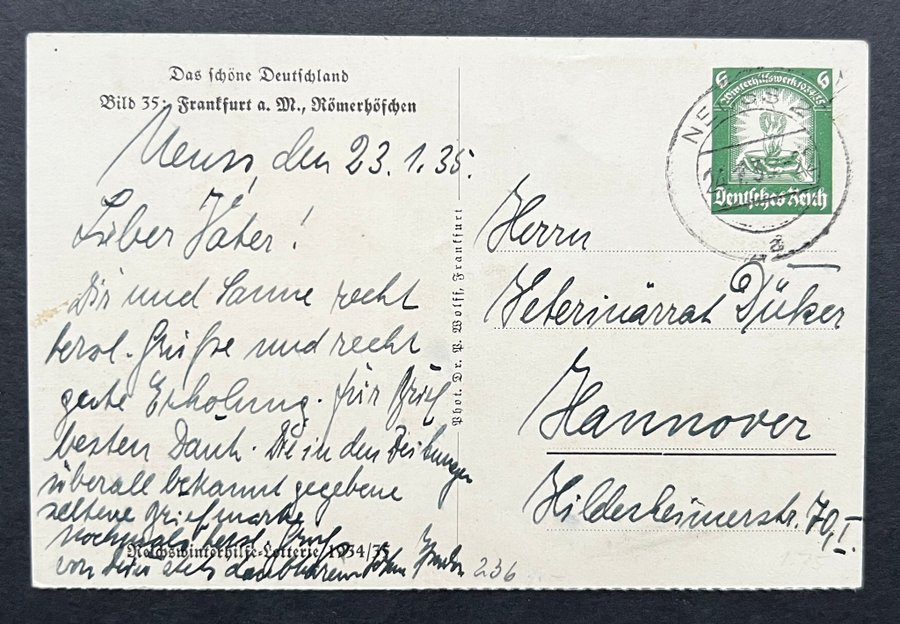 Das schöne Deutschland
Bild 35: Frankfurt a. M., Römerhöfchen
Neuss, den 23.1.35.
Lieber Vater!
Dir und Sanne recht
herzl. Grüße und recht
gute Erholung. Für Brief
besten Dank. Die in den Zeitungen
überall bekannt gegebene
seltene Briefmarke
nochmals herzl. Gruß
von Deinem stets dankbaren Sohn
236
Reichswinterhilfe-Lotterie 1934/35
Phot. Dr. P. Wolff, Frankfurt
6 6
Winterhilfswerk 1934/35
Deutsches Reich
NEUSS 2
a
Herrn
Veterinärrat Düker
Hannover
Hildesheimerstr. 70, I.